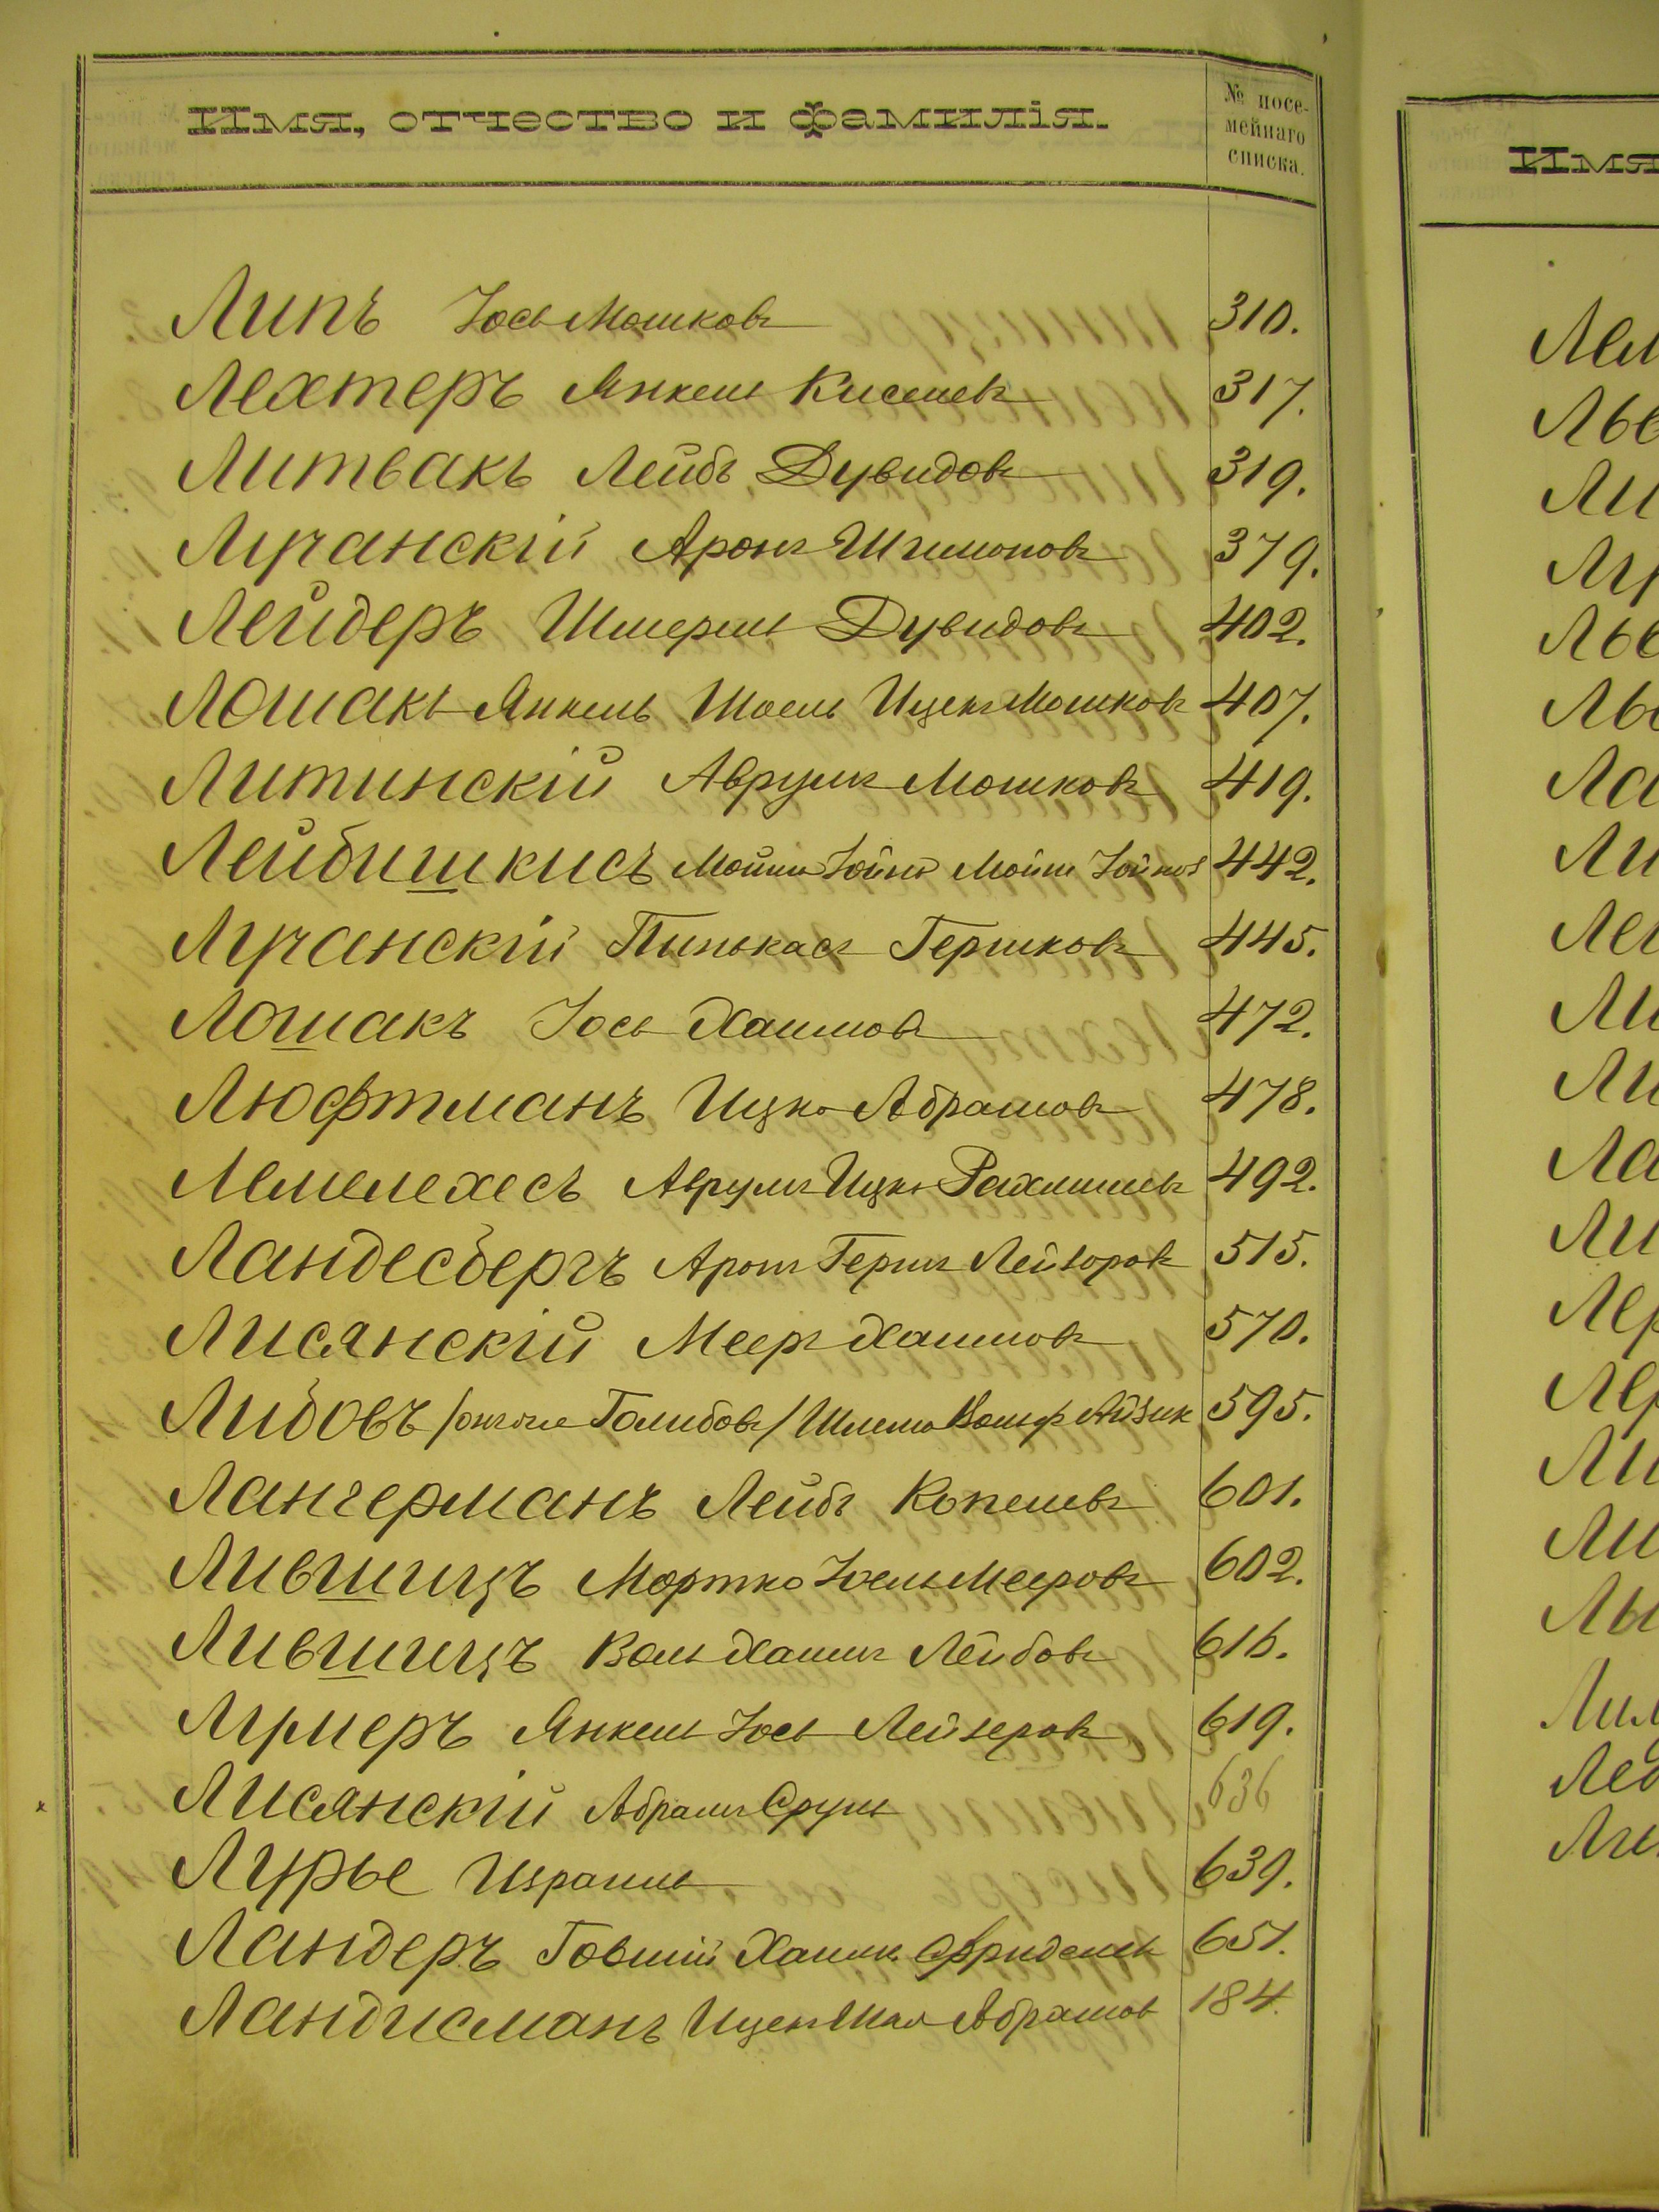 Имя, отчество и фамилія.
№ посе-
мейнаго
списка.
Липъ Іось Мошковъ 310.
Лехтеръ Янкель Киселевъ 317.
Литвакъ Лейбъ Дувидовъ 319.
Лучанскій Аронъ Шимоновъ 379.
Лейдеръ Шмерель Дувидовъ 402.
Лошакъ Янкель Шоель Ицекъ Мошковъ 407.
Литинскій Аврумъ Мошковъ 419.
Лейбишкисъ 442.
Лучанскій Пинькасъ Гершковъ 445.
Лошакъ Іось Хаимовъ 472.
Люфтманъ Ицко Абрамовъ 478.
Лемелехесъ Аврумъ Ицко Рахмилевъ 492.
Ландесбергъ Аронъ Гершъ Лейзоровъ 515.
Лисянскій Мееръ Хаимовъ 570.
Либовъ /онъ же Голибовъ/ Шлема Вольф Айзик 595.
Лангерманъ Лейбъ Копелевъ 601.
Лившицъ Мортко Іоель Мееровъ 602.
Лившицъ Воль Хаимъ Лейбовъ 616.
Лернеръ Янкель Іось Лейзеровъ 619.
Лисянскій Абрамъ Сруль 636
Лурье Израиль 639.
Ландеръ Говшій Хаимъ Фриделевъ 651.
Ландисманъ Ицекъ Шая Абрамовъ 184.
Имя
Лем
Льв
Ли
Льв
Ла
Ли
Ле
Ли
Ли
Ла
Ли
Лер
Лер
Ли
Ли